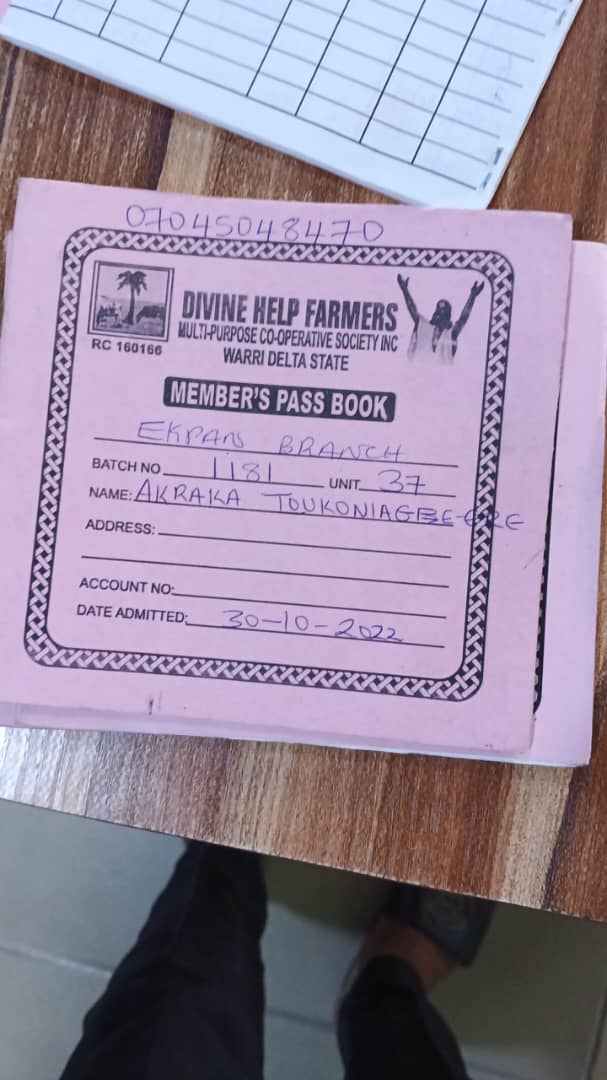 07045048470
DIVINE HELP FARMERS
MULTI-PURPOSE CO-OPERATIVE SOCIETY INC
RC 160166
WARRI DELTA STATE
MEMBER'S PASS BOOK
EKPAN BRANCH
BATCH NO 1181 UNIT 37
NAME: AKRAKA TOUKONIAGBE-ERE
ADDRESS:
ACCOUNT NO:
DATE ADMITTED: 30-10-2022